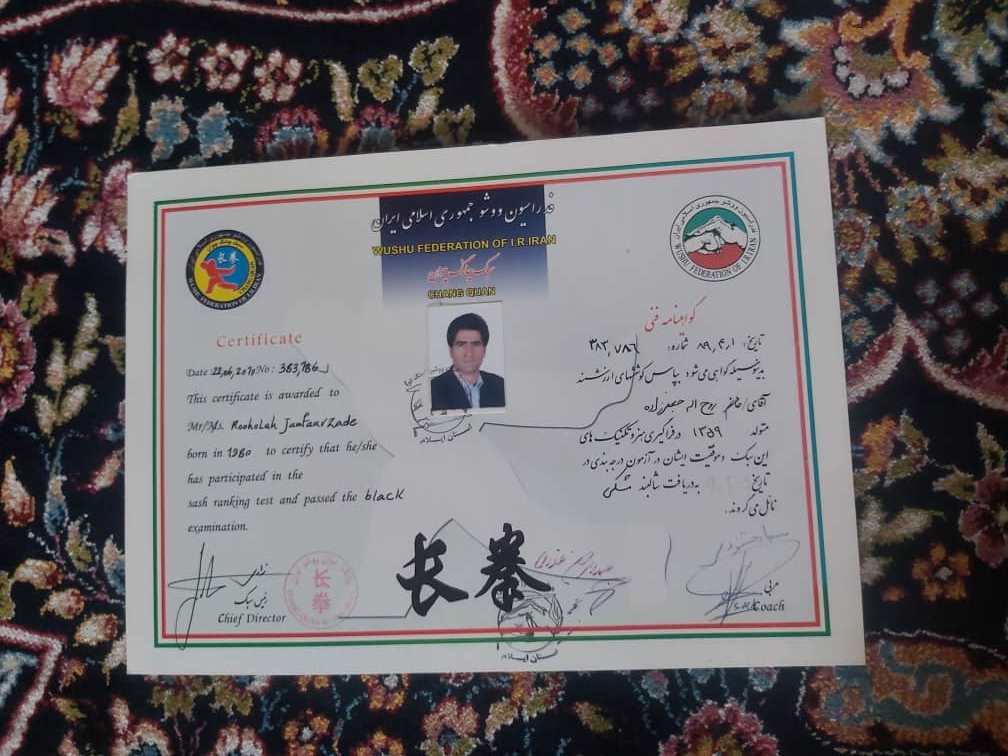 فدراسیون ووشو جمهوری اسلامی ایران
WUSHU FEDERATION OF I.R.IRAN
سبک چانگ چوان
CHANG QUAN
长拳
WUSHU FEDERATION OF I.R.IRAN
فدراسیون ووشو جمهوری اسلامی ایران
WUSHU FEDERATION OF I.R.IRAN
Certificate
Date: No: 383,786
This certificate is awarded to
Mr/Ms. Rooholah Jaafarzade
born in 1980 to certify that he/she
has participated in the
sash ranking test and passed the black
examination.
گواهینامه فنی
تاریخ: ۸۹,۴,۱ شماره: ۳۸۳,۷۸۶
بدینوسیله گواهی می شود بپاس کوششهای ارزشمند
آقای/خانم روح اله جعفرزاده
متولد ۱۳۵۹ در فراگیری هنر و تکنیک های
این سبک و موفقیت ایشان در آزمون درجه بندی در
تاریخ به دریافت شالبند مشکی
نائل می گردند.
长拳
رئیس سبک
Chief Director
长拳
استان ایلام
مربی
Coach